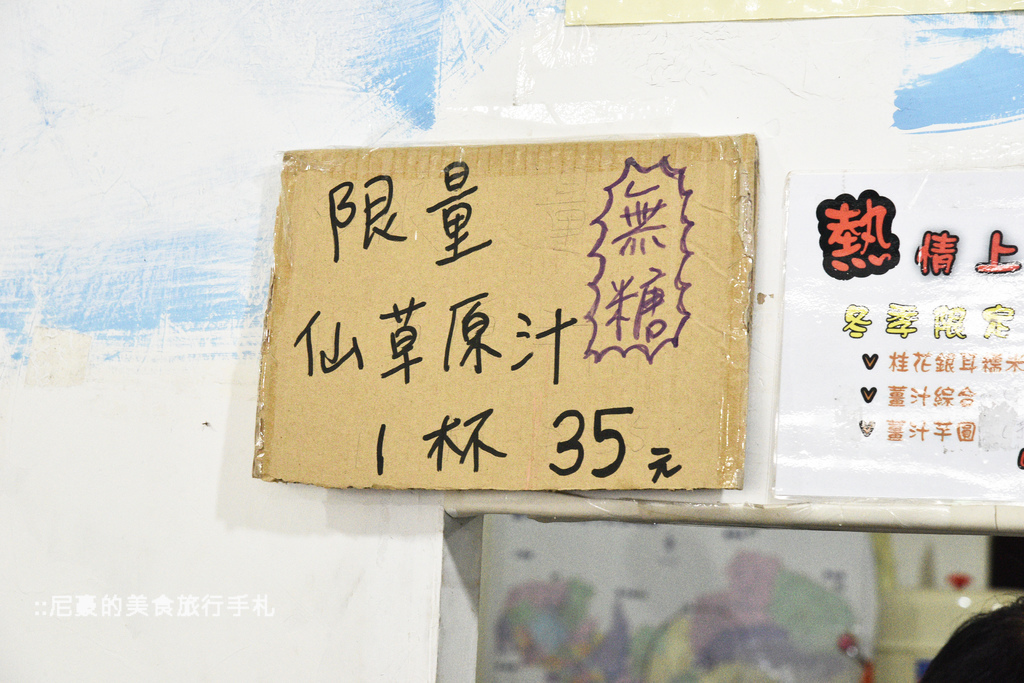 限量
無糖
仙草原汁
1杯 35元
熱情上
冬季限定
桂花銀耳糯米
薑汁綜合
薑汁芋圓
::尼豪的美食旅行手札